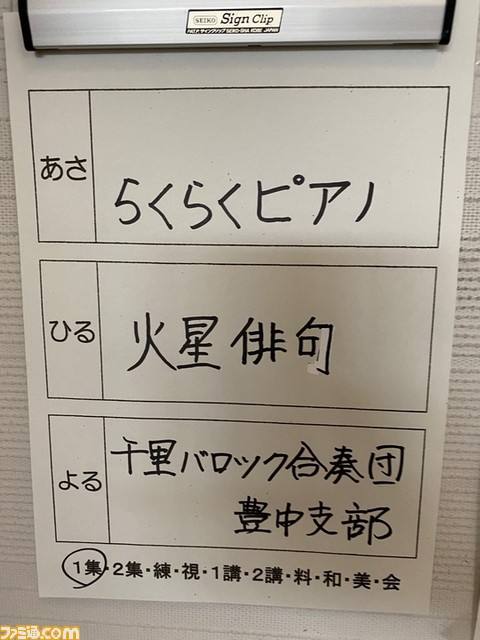 SEIKO Sign Clip
PAT.P. サインクリップ SEIKO-SHA KOBE JAPAN
あさ
らくらくピアノ
ひる
火星俳句
よる
千里バロック合奏団
豊中支部
1集・2集・練・視・1講・2講・料・和・美・会
ファミ通.com